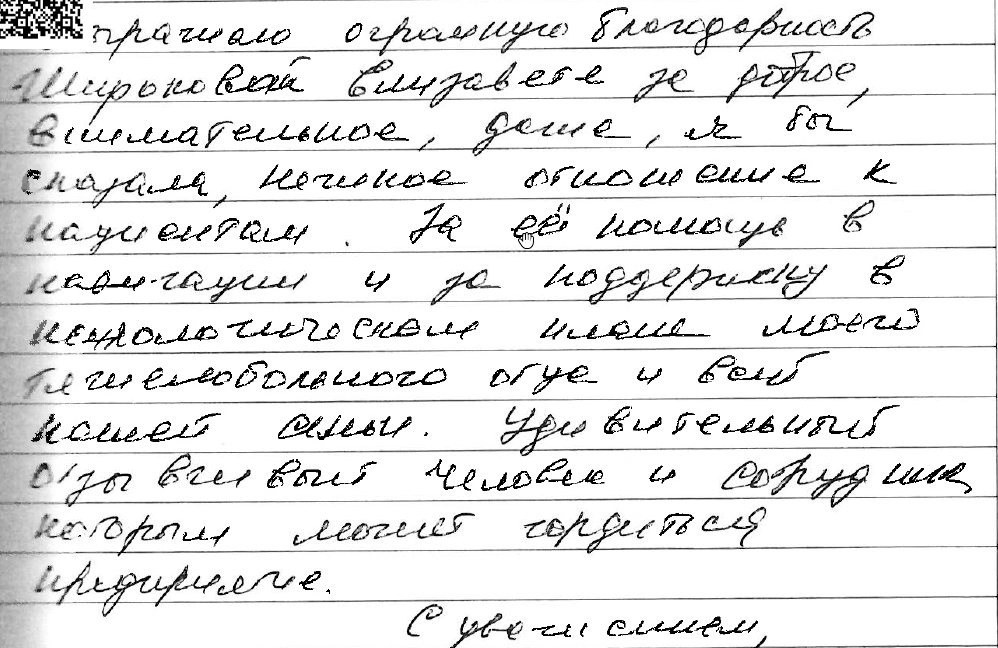 выражаю огромную благодарность
Широковой Елизавете за доброе,
внимательное, даже, я бы
сказала, нежное отношение к
пациентам. За её помощь в
навигации и за поддержку в
психологическом плане моего
тяжелобольного отца и всей
нашей семьи. Удивительный
отзывчивый человек и сотрудник,
которым может гордиться
предприятие.
С уважением,